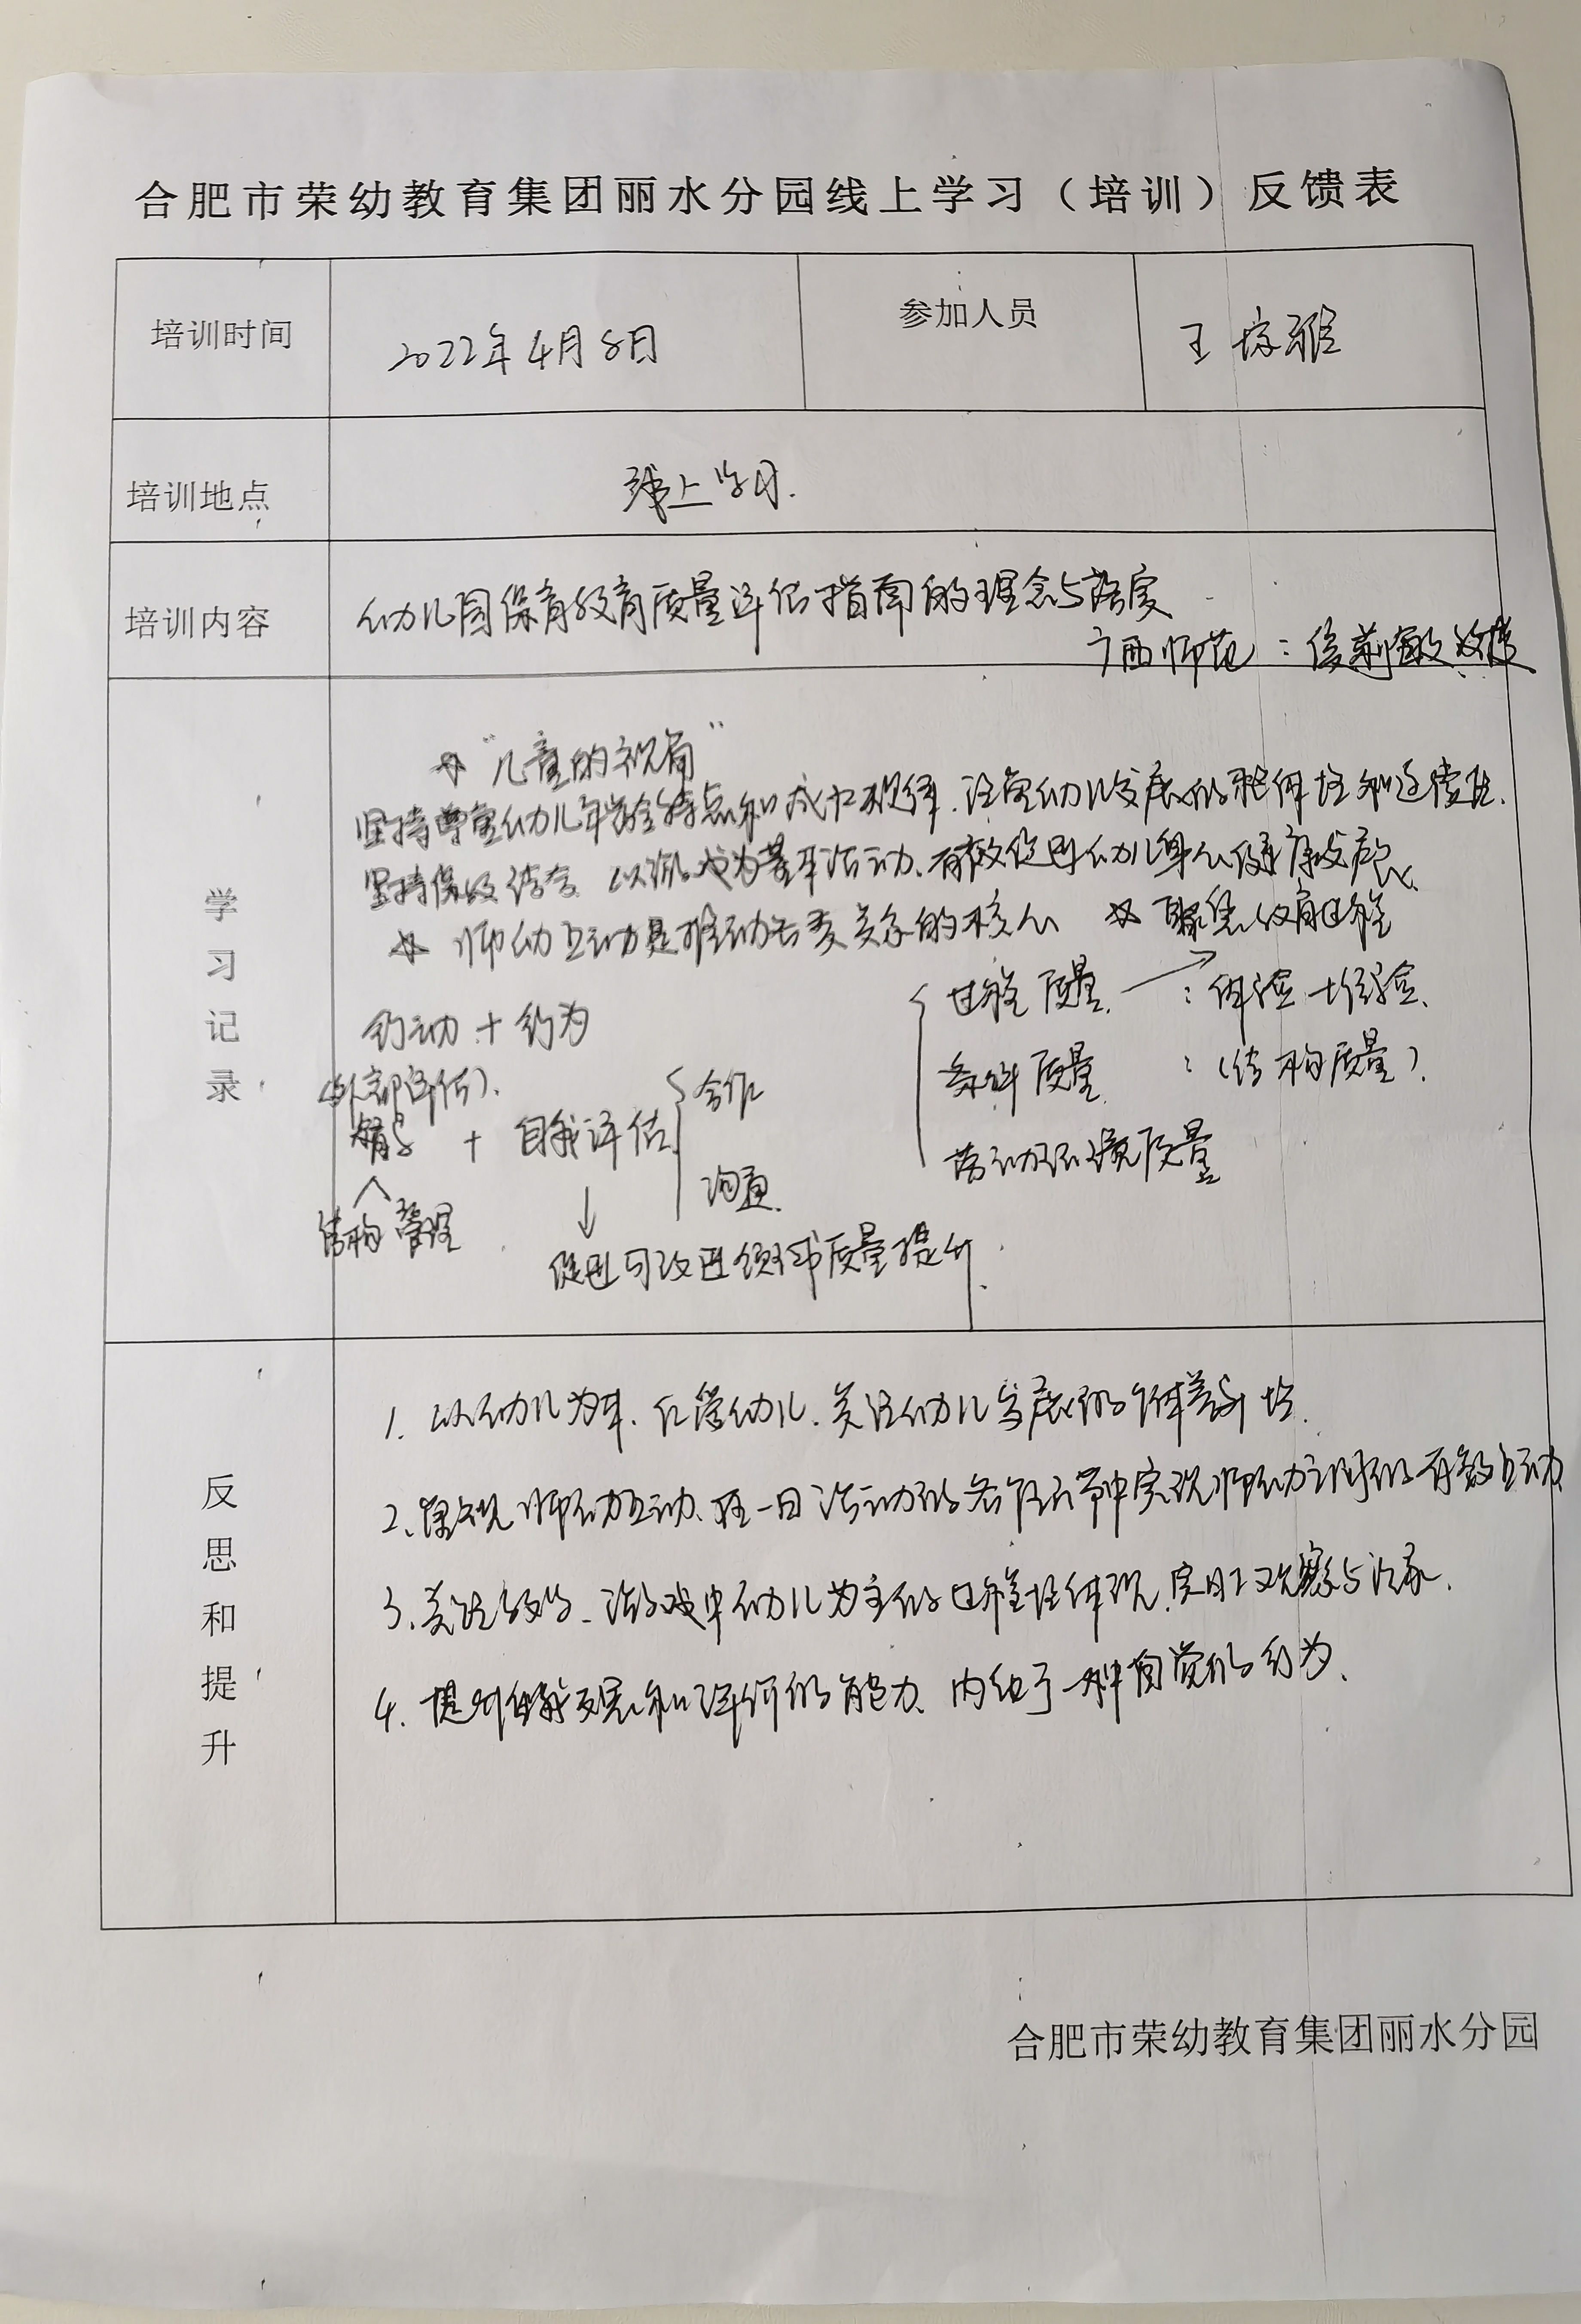 合肥市荣幼教育集团丽水分园线上学习（培训）反馈表
培训时间 2022年4月8日 参加人员 王 雅
培训地点 线上学习.
培训内容 幼儿园保育教育质量评估指南的理念与落实
广西师范：侯莉敏教授
学习记录
☆ "儿童的视角"
坚持尊重幼儿年龄特点和成长规律、注重幼儿发展的整体性和连续性、
坚持保教结合 以游戏为基本活动、有效促进幼儿身心健康发展
☆ 师幼互动是推动 关系的核心 ☆ 聚焦保育过程
过程质量 → ：体验+经验、
行动+行为
条件质量 ：（结构质量）.
（外部评估）. 合作
+ 自我评估
活动环境质量
沟通
结构 管理
↓
促进与改进 质量提升
反思和提升
1. 以幼儿为本、 幼儿、关注幼儿发展的个体差异性.
2、重视师幼互动、在一日活动的各个环节中实现师幼之间的有效互动
3、关注教学、游戏中幼儿为主的过程性体现、实时观察与记录、
4、提升自我反思和评价的能力、内化于一种自觉的行为、
合肥市荣幼教育集团丽水分园